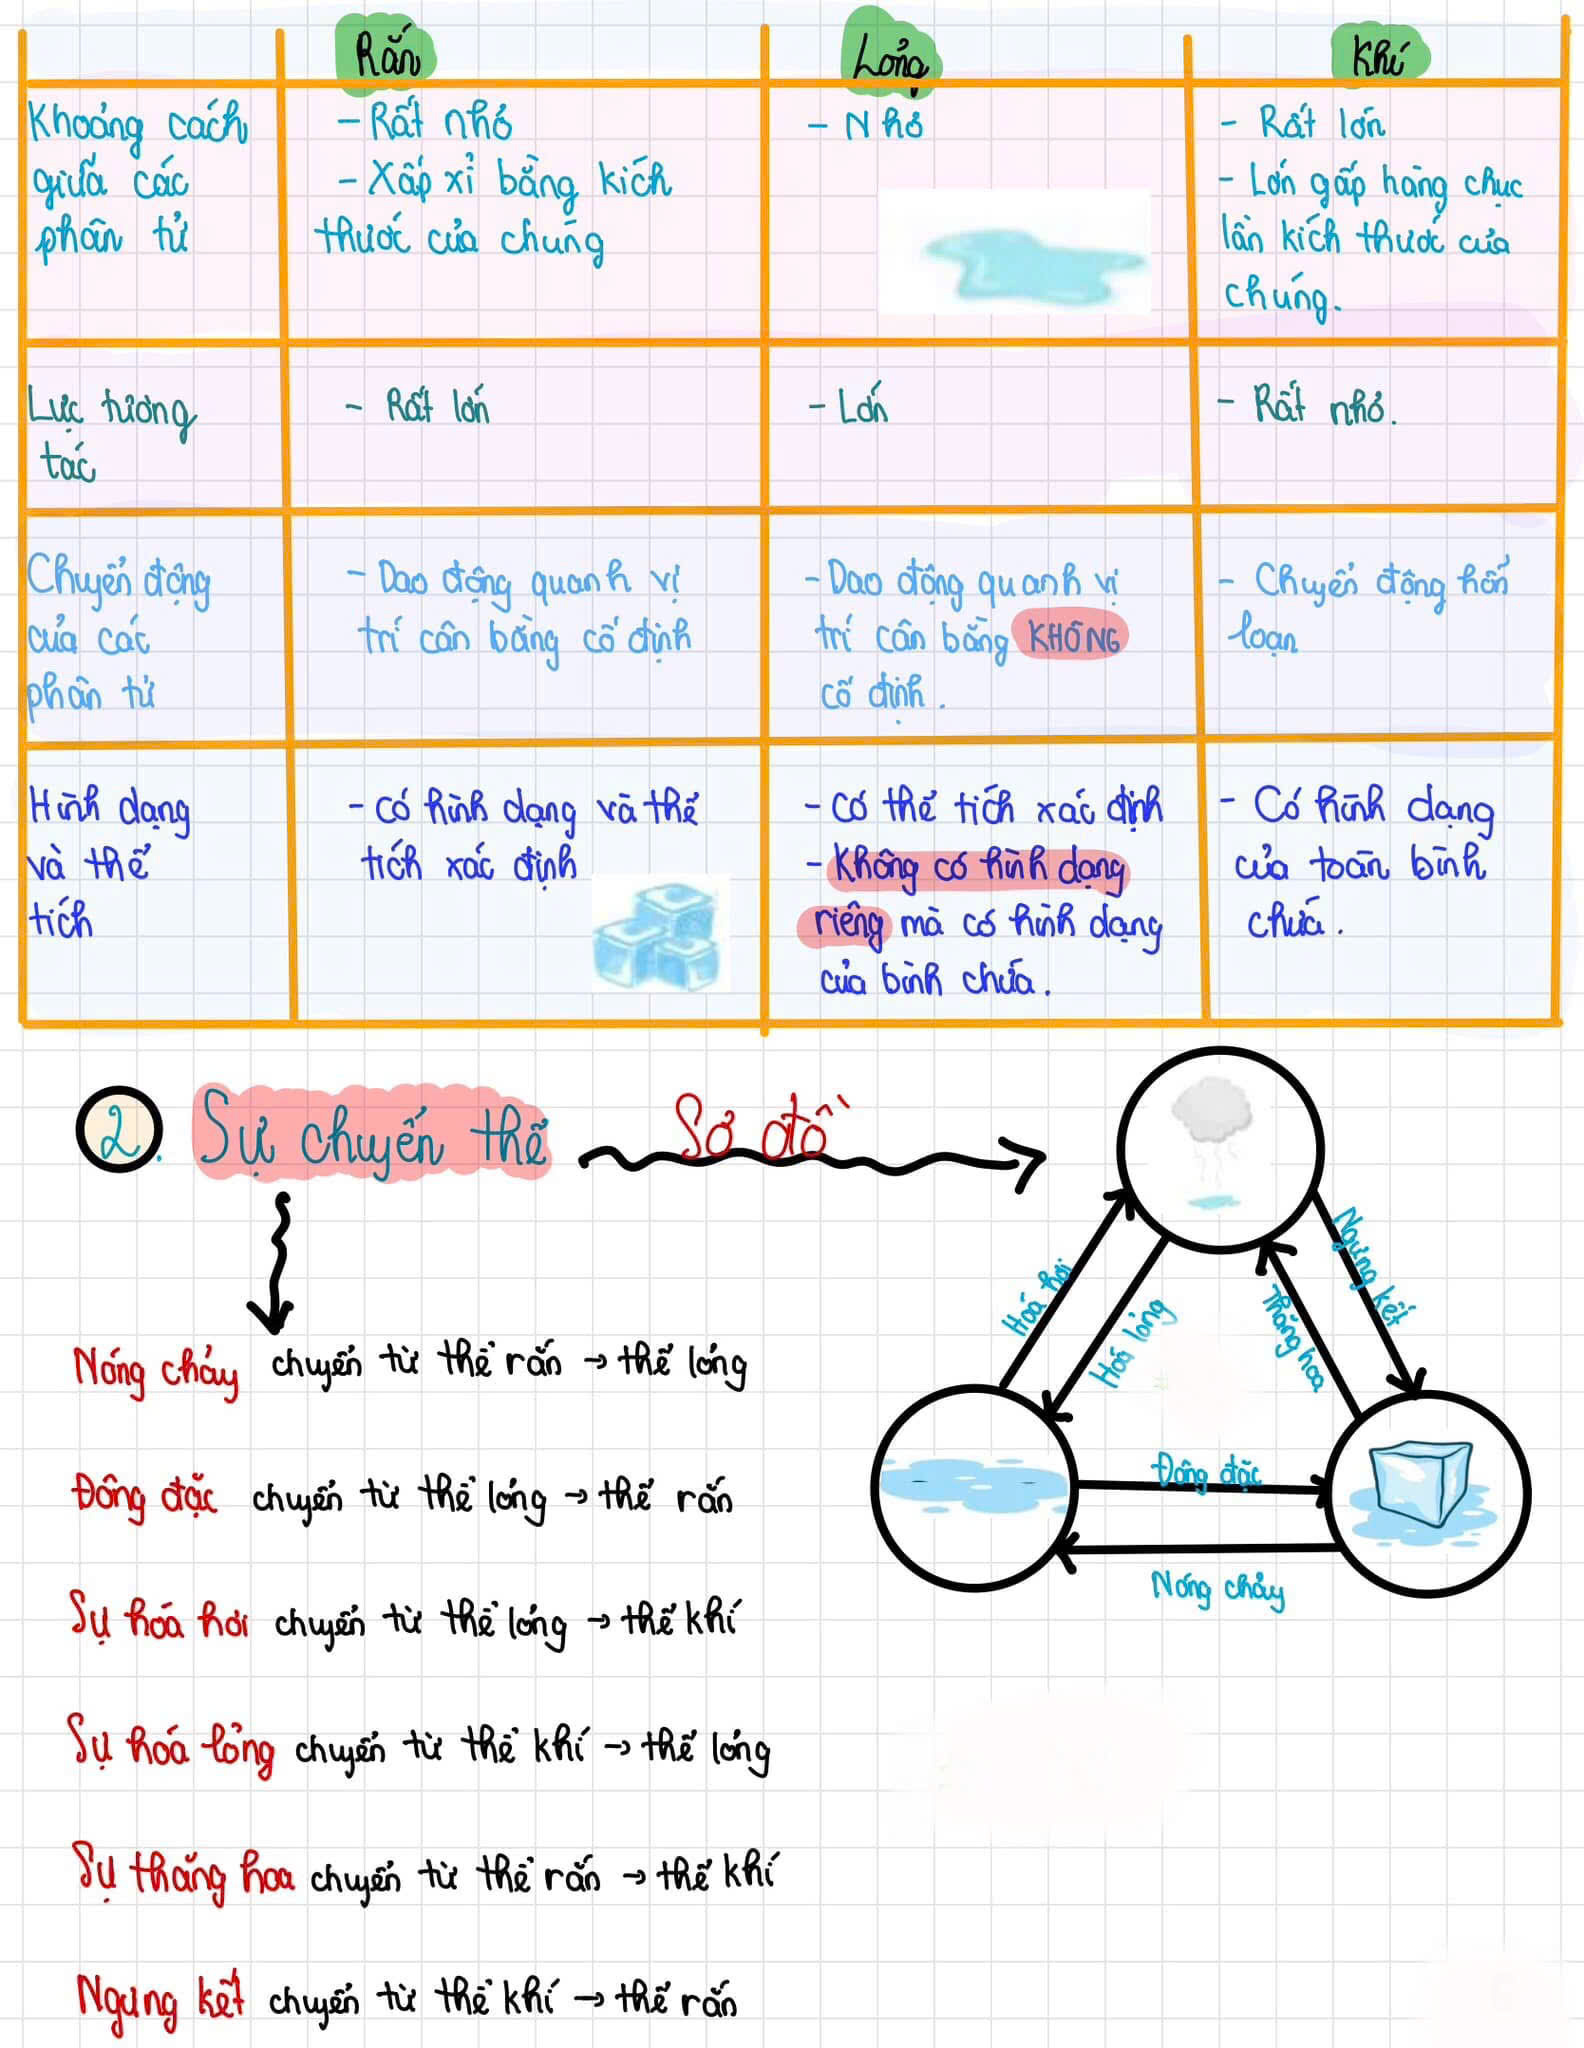 Rắn
Lỏng
Khí
Khoảng cách
giữa các
phân tử
- Rất nhỏ
- Xấp xỉ bằng kích
thước của chúng
- Nhỏ
- Rất lớn
- Lớn gấp hàng chục
lần kích thước của
chúng.
Lực tương
tác
- Rất lớn
- Lớn
- Rất nhỏ.
Chuyển động
của các
phân tử
- Dao động quanh vị
trí cân bằng cố định
- Dao động quanh vị
trí cân bằng KHÔNG
cố định.
- Chuyển động hỗn
loạn
Hình dạng
và thể
tích
- có hình dạng và thể
tích xác định
- có thể tích xác định
- Không có hình dạng
riêng mà có hình dạng
của bình chứa.
- Có hình dạng
của toàn bình
chứa.
2. Sự chuyển thể
Sơ đồ
Hoá hơi
Hoá lỏng
Thăng hoa
Ngưng kết
Đông đặc
Nóng chảy
Nóng chảy chuyển từ thể rắn → thể lỏng
Đông đặc chuyển từ thể lỏng → thể rắn
Sự hóa hơi chuyển từ thể lỏng → thể khí
Sự hóa lỏng chuyển từ thể khí → thể lỏng
Sự thăng hoa chuyển từ thể rắn → thể khí
Ngưng kết chuyển từ thể khí → thể rắn